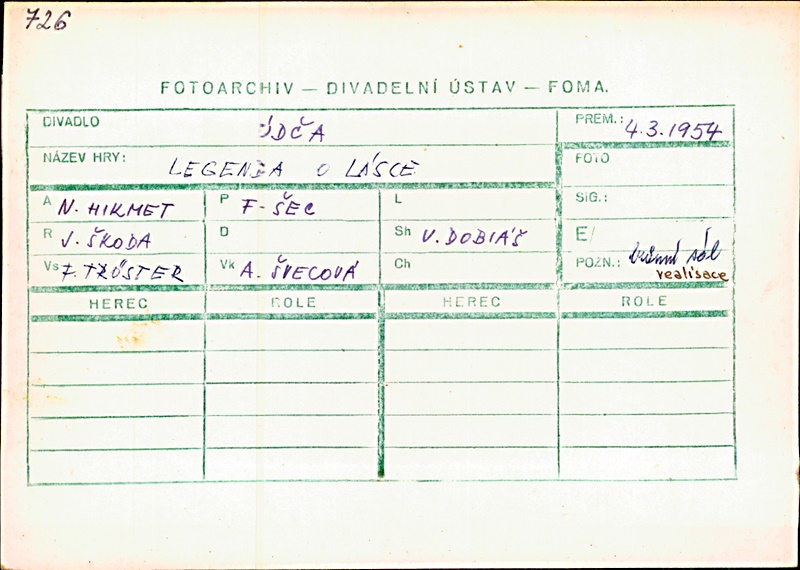 726
FOTOARCHIV — DIVADELNÍ ÚSTAV — FOMA.
DIVADLO ÚDČA PREM.: 4.3.1954
NÁZEV HRY: LEGENDA O LÁSCE FOTO
A N. HIKMET P F. ŠEC L SIG.:
R J. ŠKODA D Sh V. DOBIÁŠ E/
Vs F. TRÖSTER Vk A. ŠVECOVÁ Ch POZN.: sál
realisace
HEREC ROLE HEREC ROLE